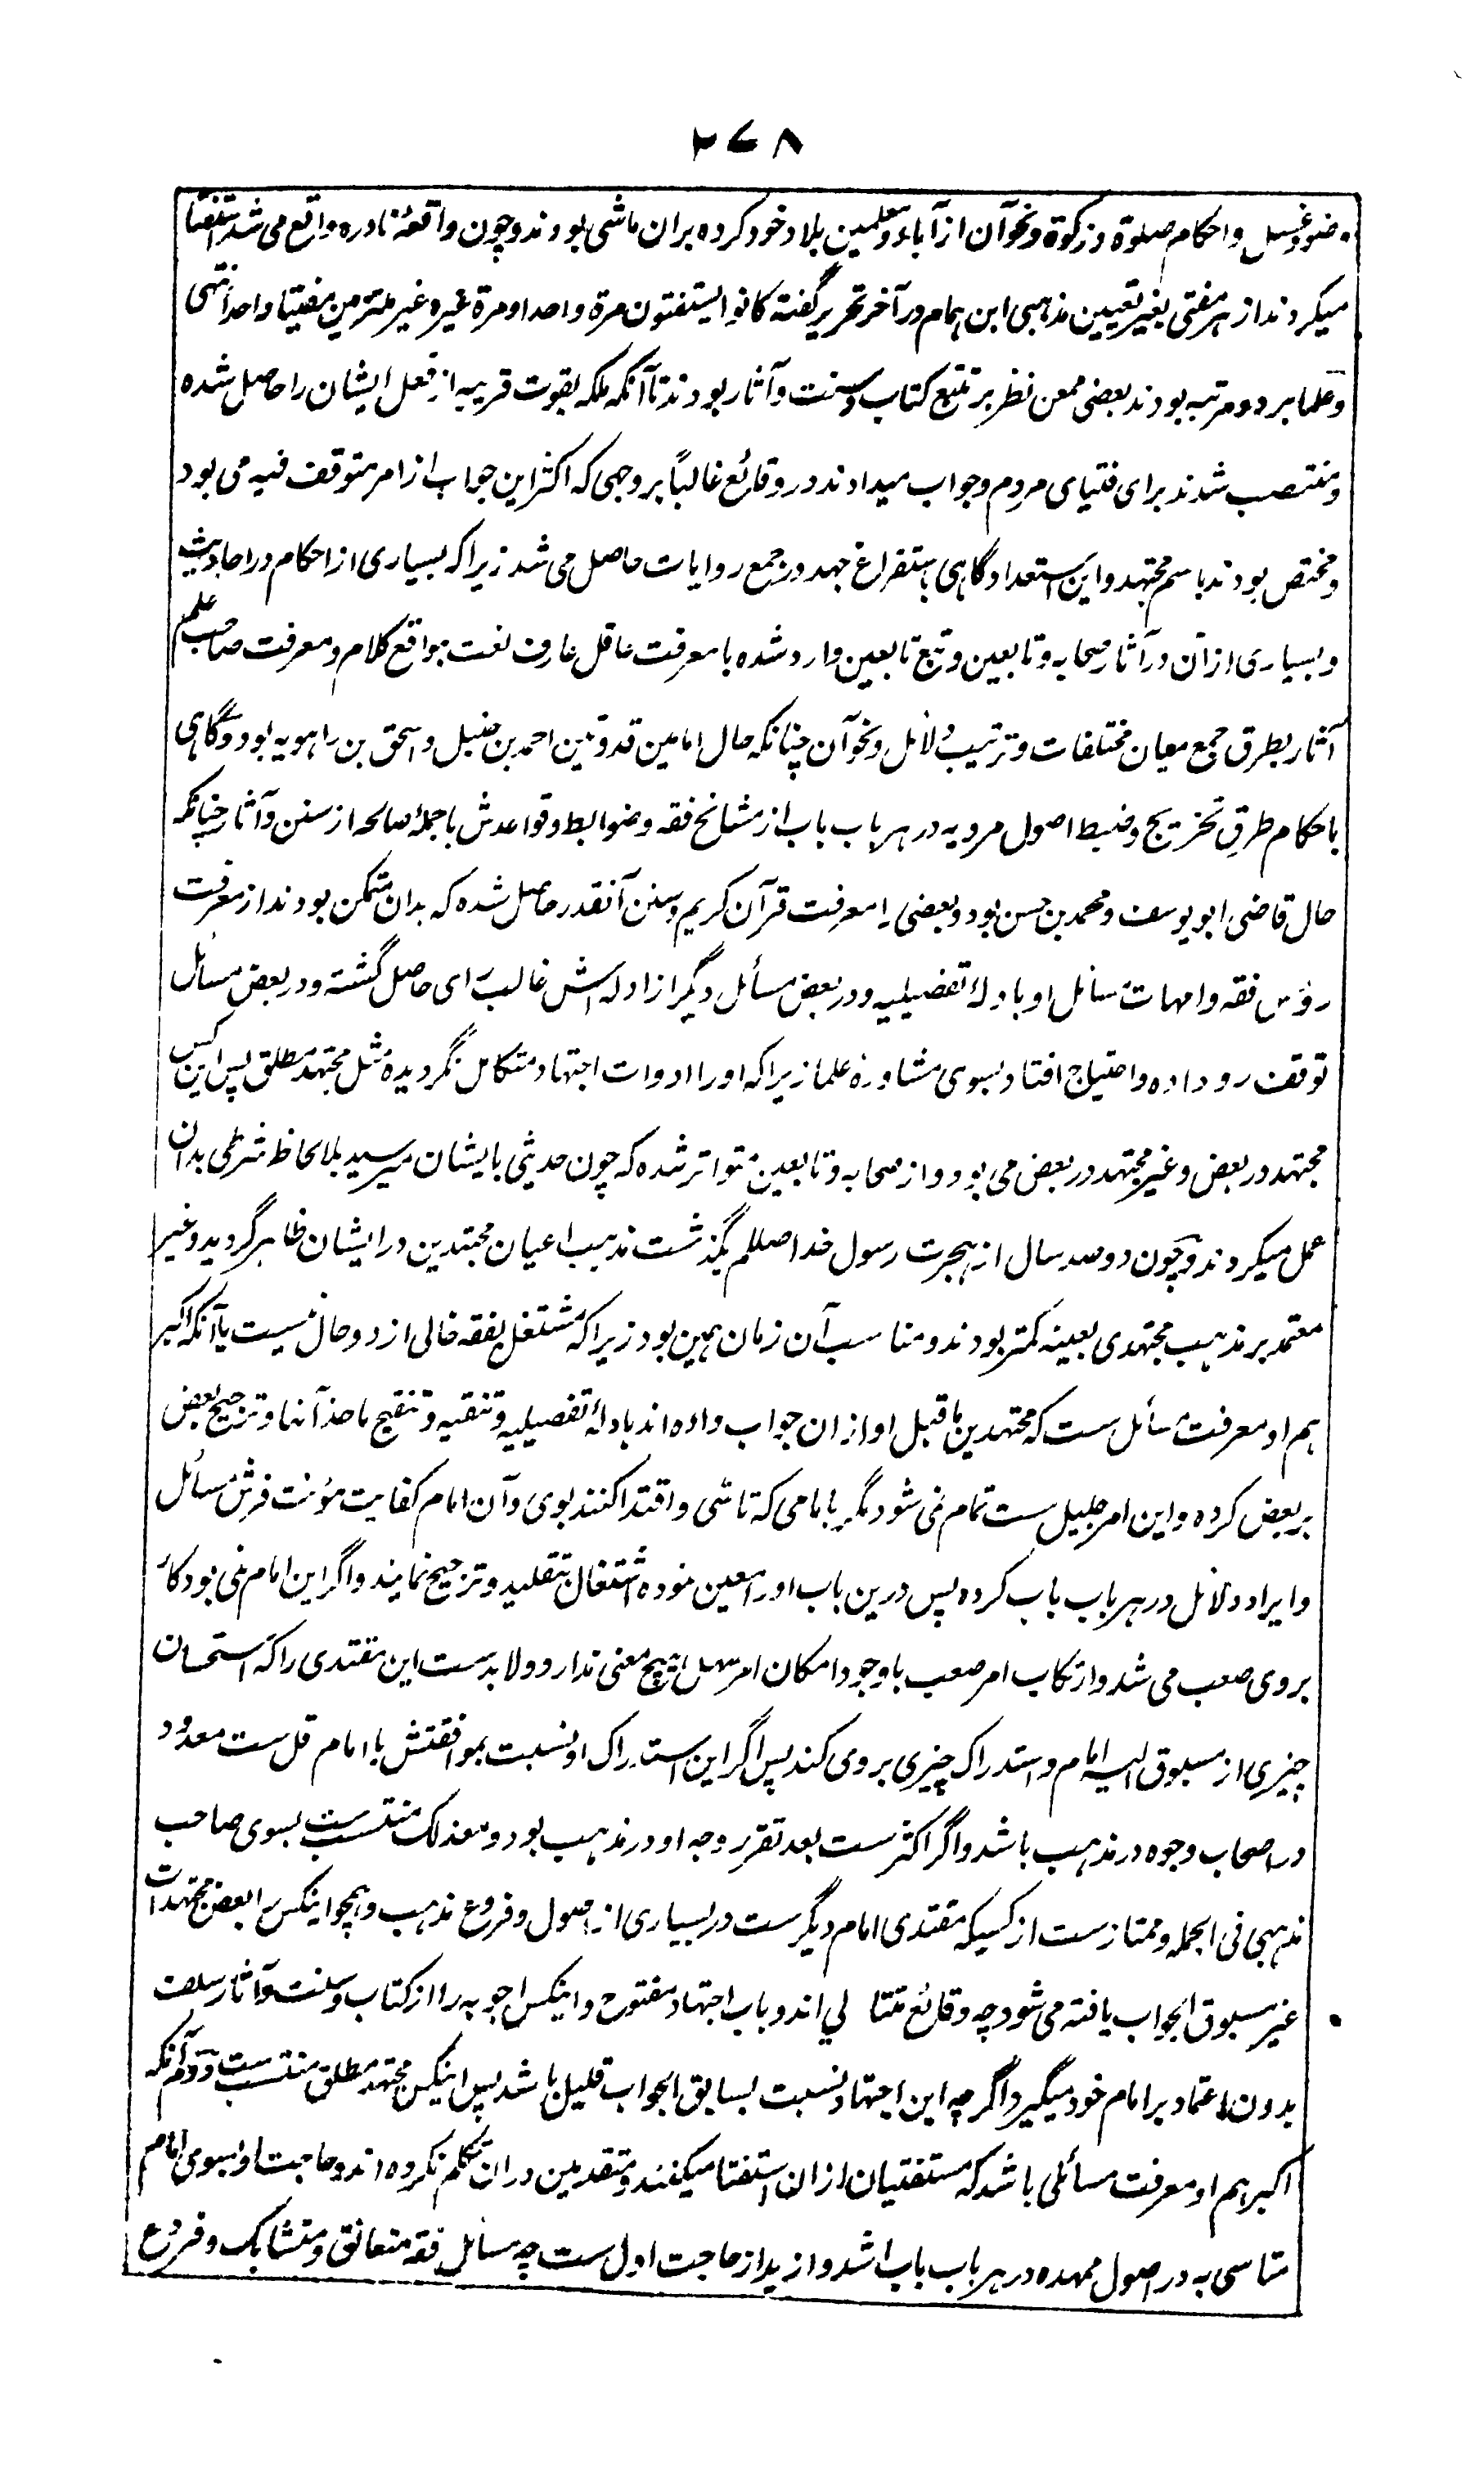 ۲۷۸
وضو و غسل و احکام صلوة و زکوة و نحو آن از آباء و معلمین بلاد خود کرده بران ماشی بودند و چون واقعهٔ نادره واقع می شد استفتا
میکردند از هر مفتی بغیر تعیین مذهبی ابن همام در آخر تحریر گفته کانوا یستفتون مرة واحدا و مرة غیره غیر ملتزمین مفتیا واحدا انتهی
و علما بر دو مرتبه بودند بعضی ممعن نظر بر تتبع کتاب و سنت و آثار بودند تا آنکه ملکه بقوت قریبه از فعل ایشان را حاصل شده
و منتصب شدند برای فتیای مردم و جواب میدادند در وقائع غالباً بر وجهی که اکثر این جواب از امر متوقف فیه می بود
و مختص بودند باسم مجتهد و این استعداد گاهی باستفراغ جهد در جمع روایات حاصل می شد زیرا که بسیاری از احکام در احادیث
و بسیاری ازان در آثار صحابه و تابعین و تبع تابعین وارد شده با معرفت عاقل عارف لغت بمواقع کلام و معرفت صاحب علم
آثار بطرق جمع میان مختلفات و ترتیب دلائل و نحو آن چنانکه حال امامین قدوتین احمد بن حنبل و اسحق بن راهویه بود و گاهی
باحکام طرق تخریج و ضبط اصول مرویه در هر باب باب از مشائخ فقه و ضوابط و قواعدش با جملهٔ صالحه از سنن و آثار چنانکه
حال قاضی ابو یوسف و محمد بن حسن بود و بعضی را معرفت قرآن کریم و سنن آنقدر حاصل شده که بدان متمکن بودند از معرفت
رؤس فقه و امهات مسائل او بادلهٔ تفصیلیه و در بعض مسائل دیگر از ادله اش غالب رای حاصل گشته و در بعض مسائل
توقف رو داده و احتیاج افتاد بسوی مشاورهٔ علما زیرا که او را ادوات اجتهاد متکامل نگردیده مثل مجتهد مطلق پس این کس
مجتهد در بعض و غیر مجتهد در بعض می بود و از صحابه و تابعین متواتر شده که چون حدیثی بایشان میرسید بلا لحاظ شرطی بدان
عمل میکردند و چون دو صد سال از هجرت رسول خدا صللم بگذشت مذهب اعیان مجتهدین در ایشان ظاهر گردید و غیر
معتمد بر مذهب مجتهدی بعینه کمتر بودند و مناسب آن زمان همین بود زیرا که مشتغل بفقه خالی از دو حال نیست یا آنکه اکبر
هم او معرفت مسائل ست که مجتهدین ما قبل او ازان جواب داده اند بادلهٔ تفصیلیه و تنقیه و تنقیح ماخذ آنها و ترجیح بعض
بر بعض کرده و این امر جلیل ست تمام نمی شود مگر بامامی که تاسی و اقتدا کنند بوی و آن امام کفایت مؤنت فرش مسائل
و ایراد دلائل در هر باب باب کرده پس درین باب او را معین نموده اشتغال بتقلید و ترجیح نمایند و اگر این امام نمی بود کار
بروی صعب می شد و ارتکاب امر صعب با وجود امکان امر سهل هیچ معنی ندارد و لا بدست این مقتدی را که استحسان
چیزی از مسبوق الیه امام و استدراک چیزی بروی کند پس اگر این استدراک او نسبت بموافقتش با امام قل ست معدود
در اصحاب وجوه در مذهب باشد و اگر اکثر ست بعد تقریر وجه او در مذهب بود و معذلک منتسب ست بسوی صاحب
مذهبی فی الجمله و ممتاز ست از کسیکه مقتدی امام دیگر ست در بسیاری از اصول و فروع مذهب و همچو اینکس را بعض مجتهدات
غیر مسبوق الجواب یافته می شود چه وقائع متتالی اند و باب اجتهاد مفتوح و اینکس اجوبه را از کتاب و سنت و آثار سلف
بدون اعتماد بر امام خود میگیرد اگر چه این اجتهاد نسبت بسابق الجواب قلیل باشد پس اینکس مجتهد مطلق منتسب ست و دوم آنکه
اکبر هم او معرفت مسائلی باشد که مستفتیان ازان استفتا میکنند و متقدمین دران تکلم نکرده اند و حاجت او بسوی امام
متاسی به در اصول ممهده در هر باب باب اشد و ازید از حاجت اول ست چه مسائل فقه متعانق و متشابک و فروع